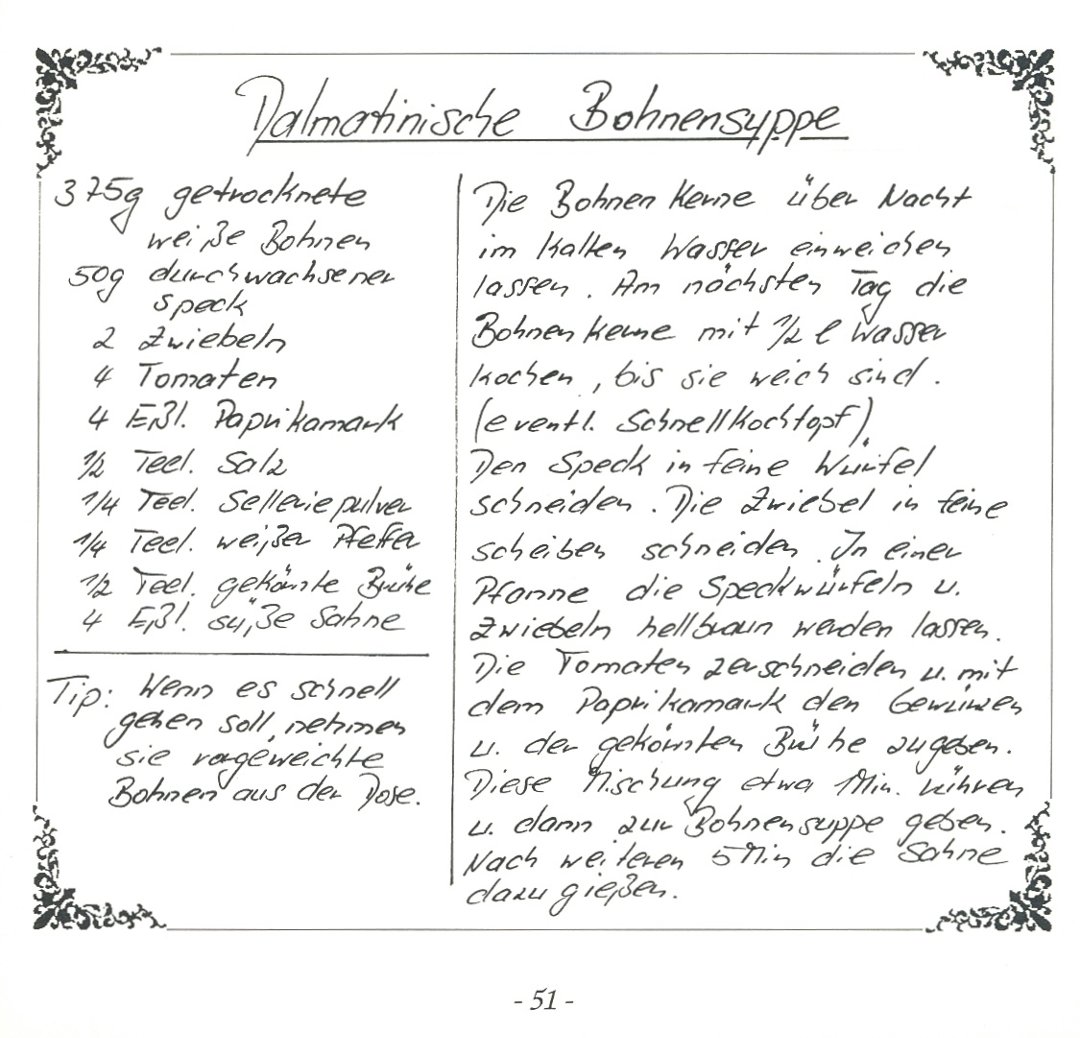 Dalmatinische Bohnensuppe
375g getrocknete
weiße Bohnen
50g durchwachsener
Speck
2 Zwiebeln
4 Tomaten
4 Eßl. Paprikamark
1/2 Teel. Salz
1/4 Teel. Selleriepulver
1/4 Teel. weißer Pfeffer
1/2 Teel. gekörnte Brühe
4 Eßl. süße Sahne
Tip: Wenn es schnell
gehen soll, nehmen
sie vorgeweichte
Bohnen aus der Dose.
Die Bohnenkerne über Nacht
im kalten Wasser einweichen
lassen. Am nächsten Tag die
Bohnenkerne mit 1/2 l Wasser
kochen, bis sie weich sind.
(eventl. Schnellkochtopf)
Den Speck in feine Würfel
schneiden. Die Zwiebel in feine
scheiben schneiden. In einer
Pfanne die Speckwürfeln u.
Zwiebeln hellbraun werden lassen.
Die Tomaten zerschneiden u. mit
dem Paprikamark den Gewürzen
u. der gekörnten Brühe zugeben.
Diese Mischung etwa 1Min. rühren
u. dann zur Bohnensuppe geben.
Nach weiteren 5Min die Sahne
dazu gießen.
- 51 -